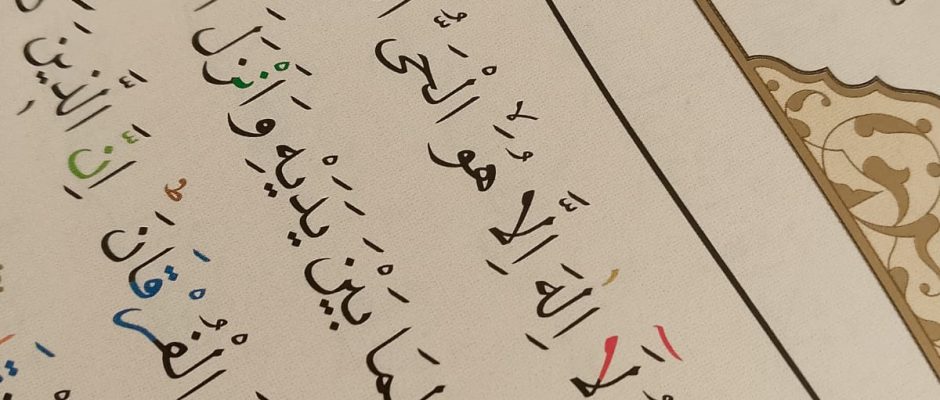 لَٓا اِلٰهَ اِلَّا هُوَۙ الْحَيُّ
لِمَا بَيْنَ يَدَيْهِ وَاَنْزَلَ
الْفُرْقَانَۜ اِنَّ الَّذ۪ينَ